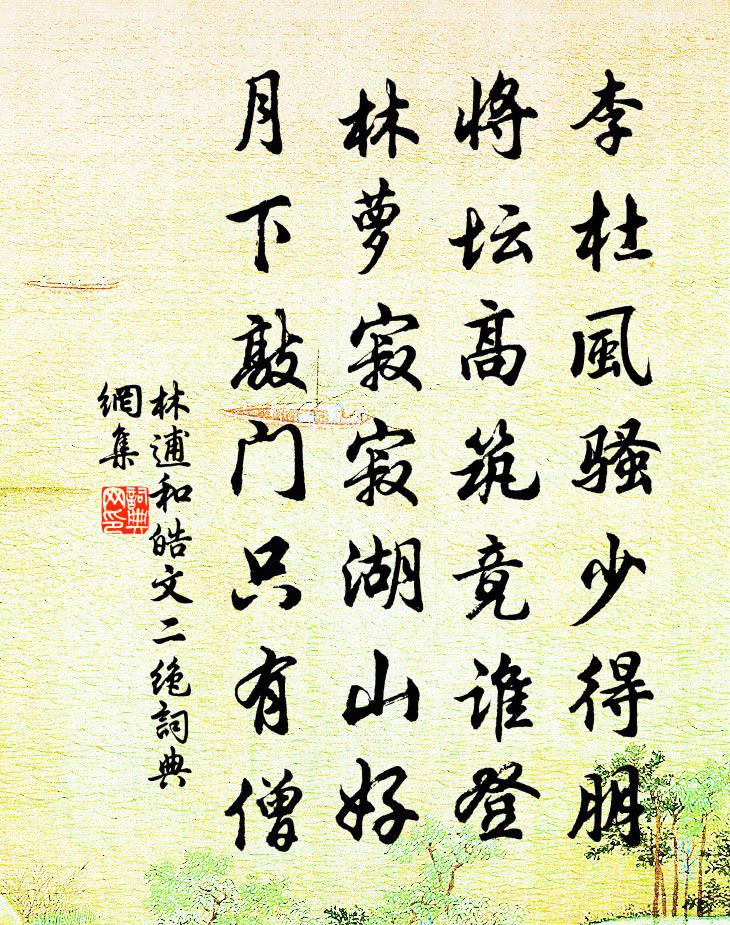 李杜風騷少得朋
將坛高筑竟谁登
林萝寂寂湖山好
月下敲门只有僧
林逋和皓文二绝詞典
網集
詞典
网印